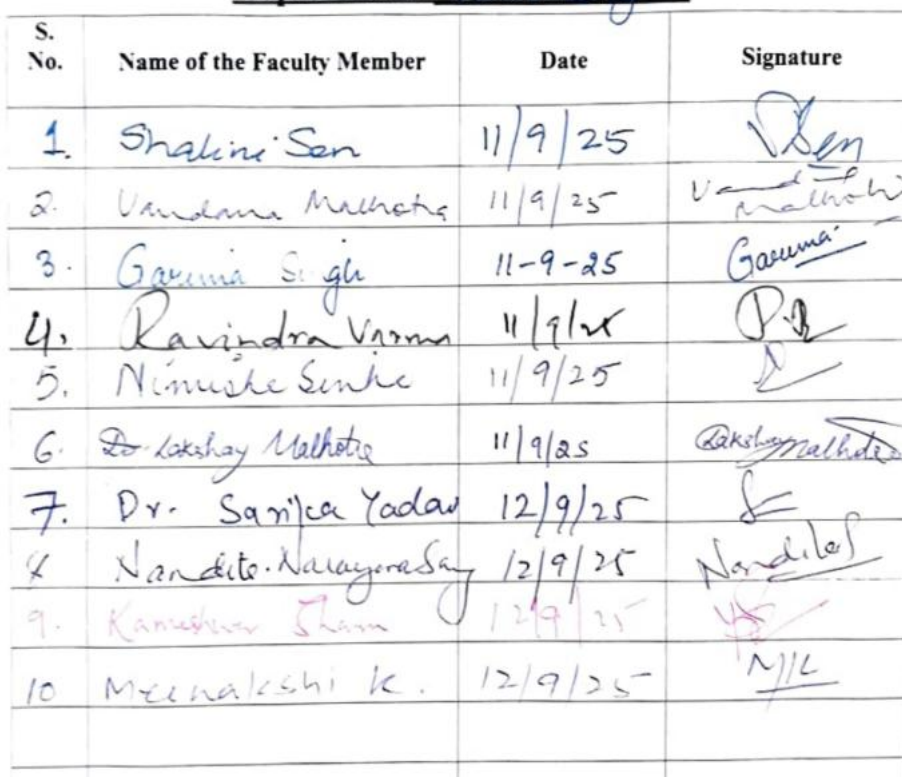 S. No. Name of the Faculty Member Date Signature
1. Shalini Sen 11/9/25 Sen
2. Vandana Malhotra 11/9/25 Vandana Malhotra
3. Garima Singh 11-9-25 Garima
4. Ravindra Varma 11/9/25
5. Sinha 11/9/25
6. Dr. Lakshay Malhotra 11/9/25 Lakshay Malhotra
7. Dr. Sarika Yadav 12/9/25
8 Nandita Narayanasamy 12/9/25 Nandita
9. Kameshwar 12/9/25
10 Meenakshi K. 12/9/25 MK